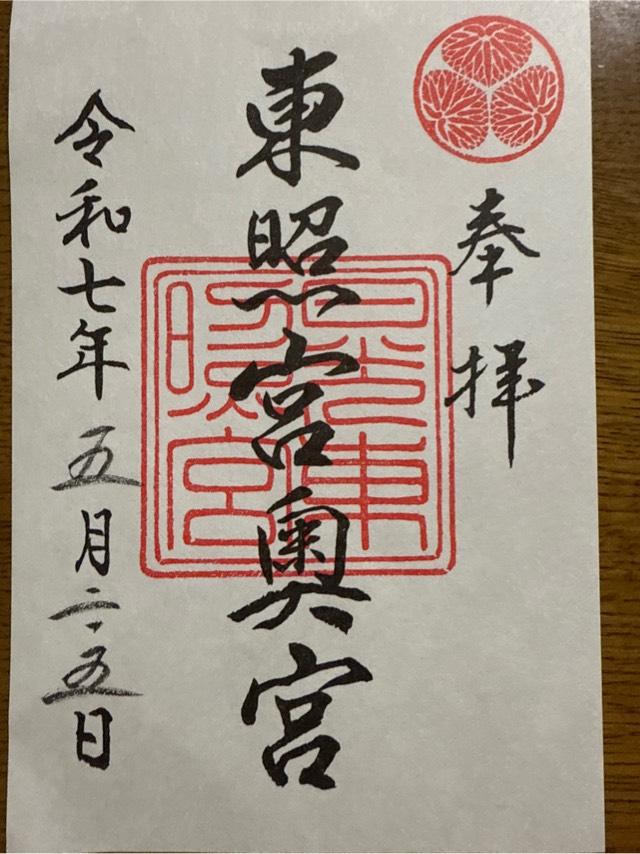 奉拝
東照宮奥宮
日光東
照宮
令和七年五月二五日